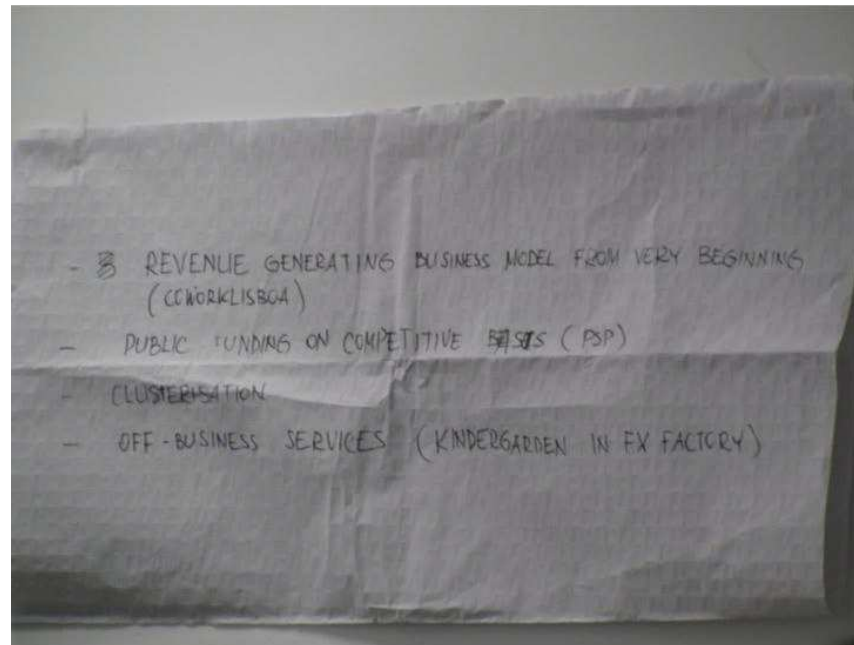 - REVENUE GENERATING BUSINESS MODEL FROM VERY BEGINNING
(COWORKLISBOA)
- PUBLIC FUNDING ON COMPETITIVE BASIS (PSP)
- CLUSTERISATION
- OFF-BUSINESS SERVICES (KINDERGARDEN IN FX FACTORY)